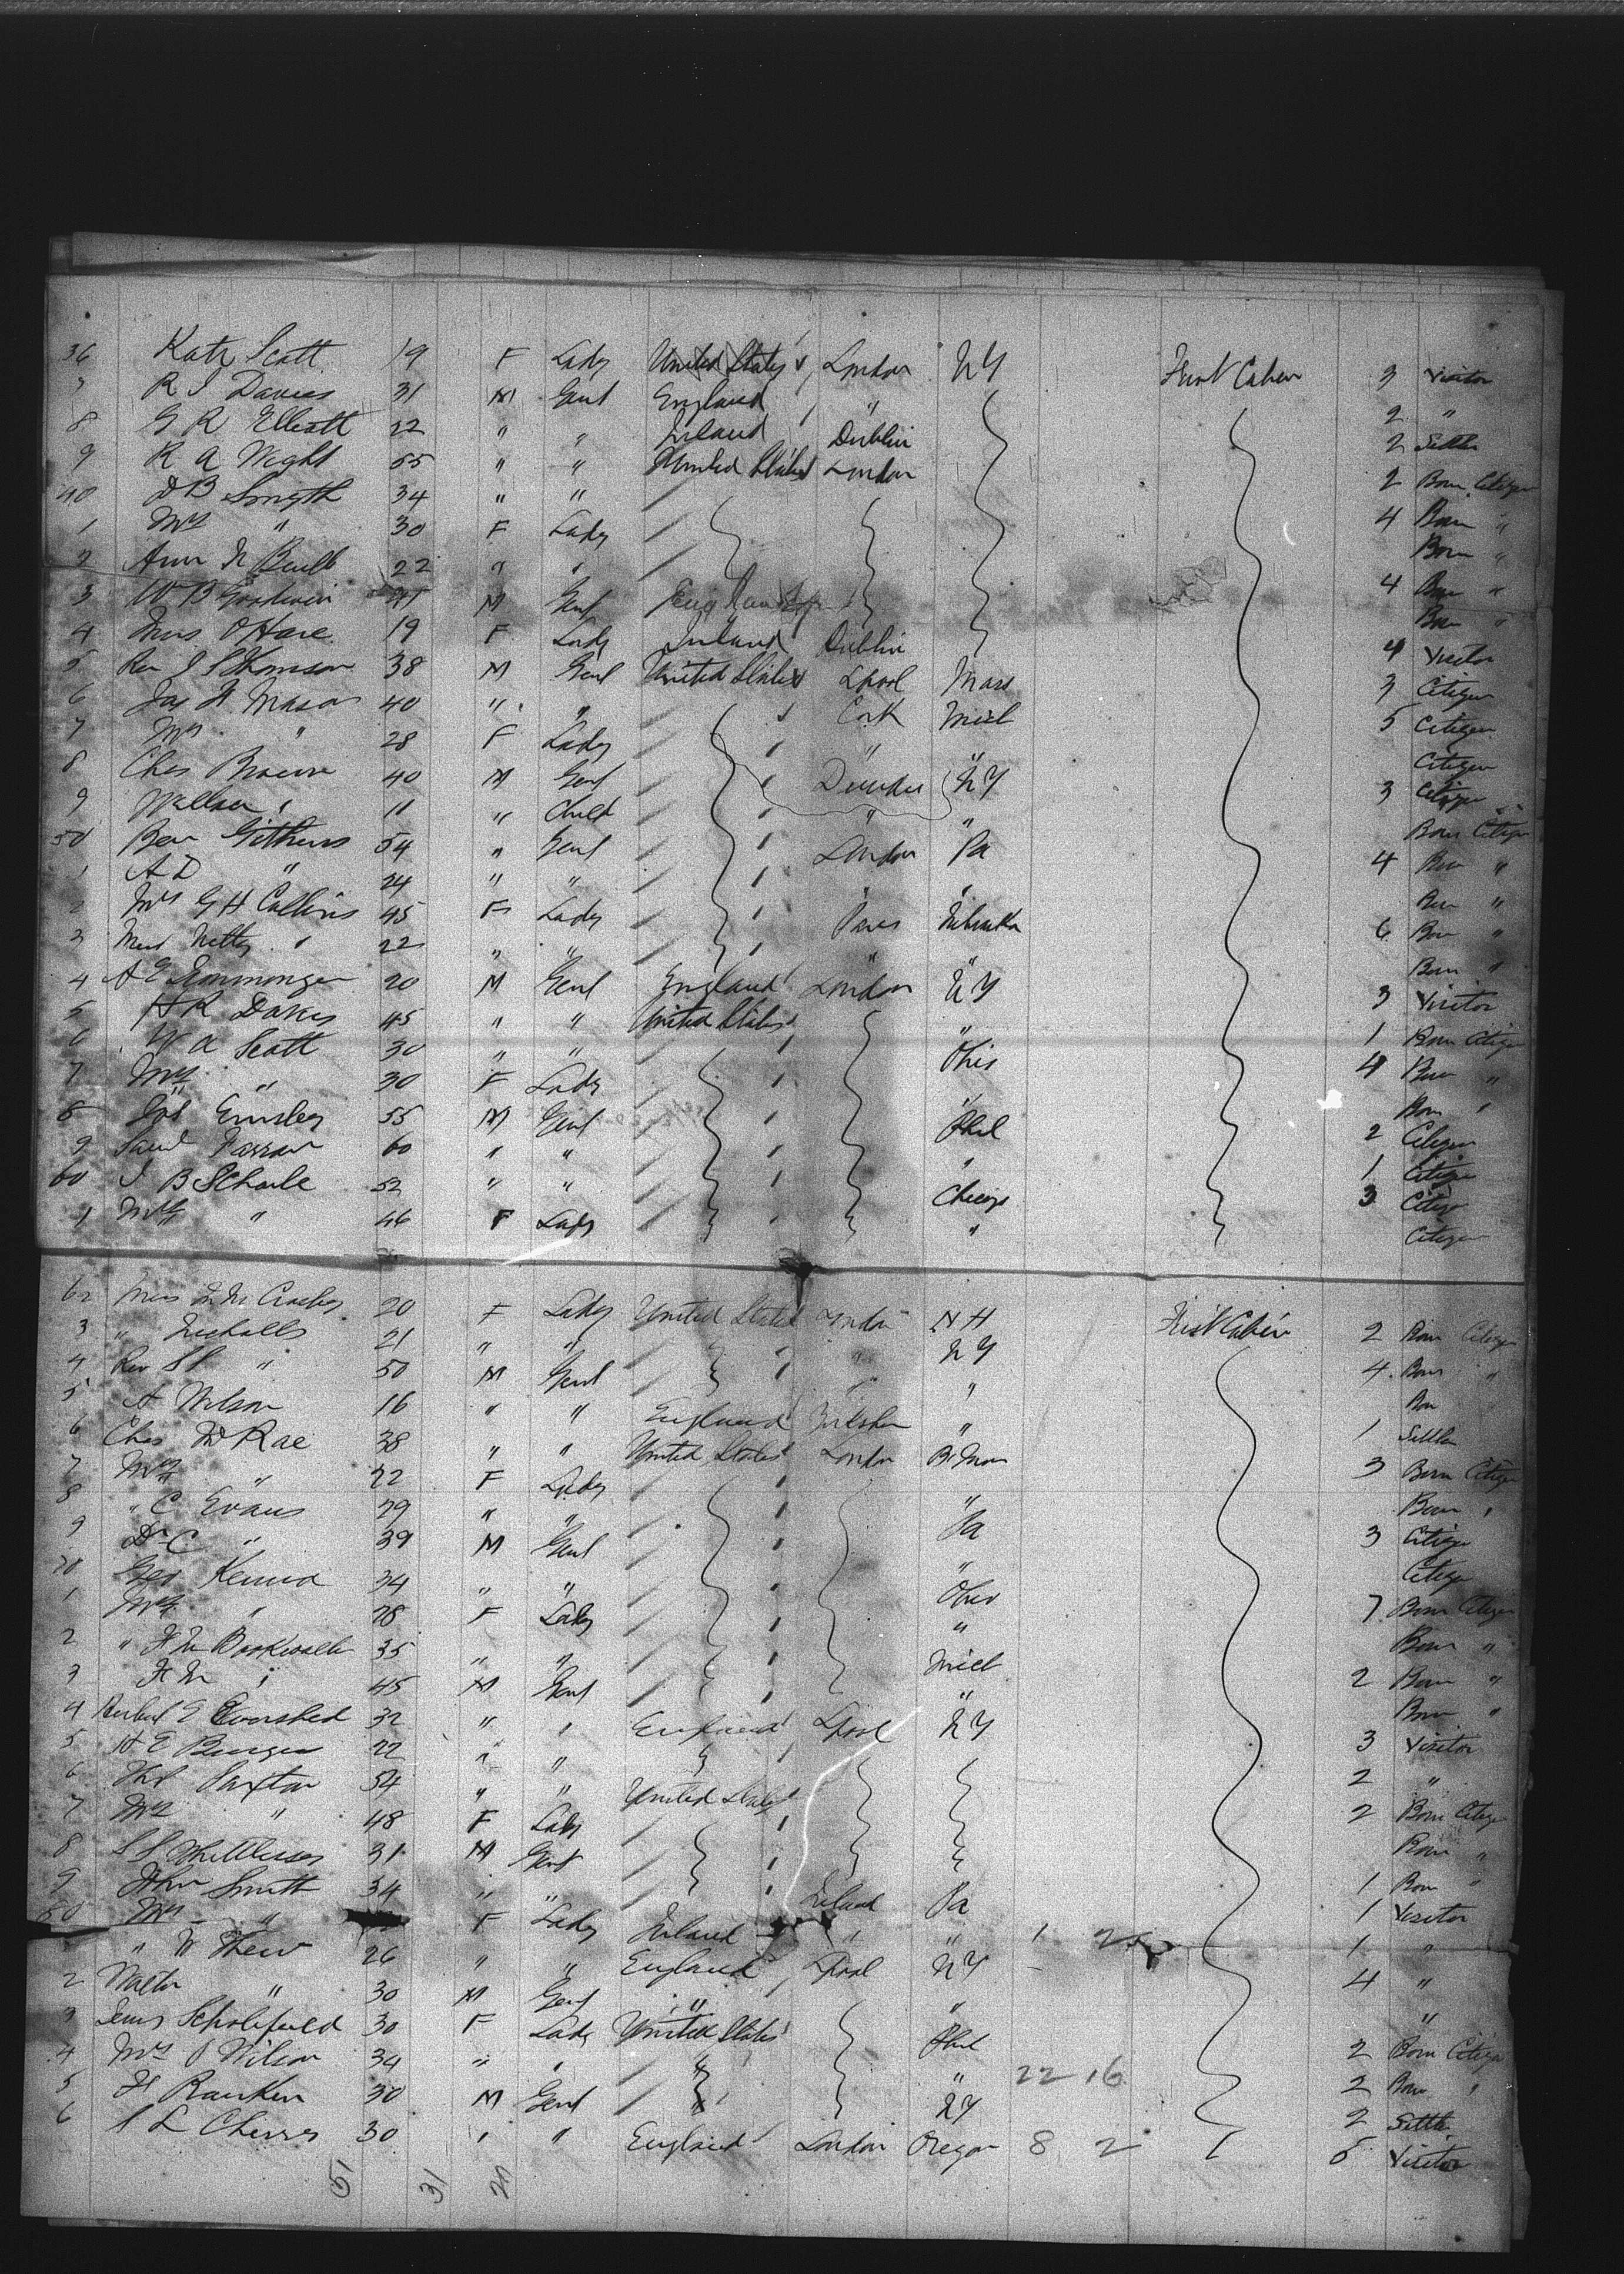 36 Kate Scott 19 F Lady United States London NY First Cabin 3 Visitor
7 R J Davies 31 M Gent England " 2 "
8 G R Elliott 22 " " Ireland Dublin 2 Settler
9 R A Wight 55 " " United States London 2 Born Citizen
40 D B Smyth 34 " " 4 Born "
1 Mrs " 30 F Lady Born "
2 Ann 22 " " 4 Born "
3 W B Goodwin M Gent Born "
4 Miss O'Hare 19 F Lady Ireland Dublin 4 Visitor
5 Rev J S Thomson 38 M Gent United States Lpool Mass 3 Citizen
6 Jas H Mason 40 " " Cork Mich 5 Citizen
7 Mrs " 28 F Lady " " Citizen
8 Chas Brown 40 M Gent Dundee NY 3 Citizen
9 Wallace " 11 " Child " " Born Citizen
50 Ben Githens 54 " Gent London Pa 4 Born "
1 A D " 24 " " " " Born "
2 Mrs G H Collins 45 F Lady Paris Nebraska 6 Born "
3 Miss Netty " 22 " " " " Born "
4 A E Ironmonger 20 M Gent England London NY 3 Visitor
5 H R Davies 45 " " United States " 1 Born Citizen
6 W A Scott 30 " " Ohio 4 Born "
7 Mrs " 30 F Lady " Born "
8 Jos Emsley 55 M Gent Phil 2 Citizen
9 Saml Farrar 60 " " " 1 Citizen
60 J B Schoule 52 " " Chicago 3 Citizen
1 Mrs " 46 F Lady " Citizen
62 Miss Crosby 20 F Lady United States London N H First Cabin 2 Born Citizen
3 " Nicholls 21 " " " NY 4 Born "
4 Rev S P " 50 M Gent " " Born
5 A Wilson 16 " " England " 1 Settler
6 Chas McRae 38 " " United States London 3 Born Citizen
7 Mrs " 22 F Lady " Born "
8 " C Evans 29 " " Pa 3 Citizen
9 Dr C " 39 M Gent " Citizen
70 Geo Kennan 34 " " Ohio 7 Born Citizen
1 Mrs " 28 F Lady " Born "
2 " F M Bookwalter 35 " " Mich 2 Born "
3 F M " 45 M Gent " Born "
4 Herbert E Evershed 32 " " England Lpool NY 3 Visitor
5 H E Burgess 22 " " 2 "
6 Thos Paxton 54 " " United States 2 Born Citizen
7 Mrs " 48 F Lady Born "
8 S S Whittlesey 31 M Gent 1 Born "
9 John Smith 34 " " Ireland Pa 1 Visitor
80 Mrs " F Lady Ireland " " 1 25 1 "
" W Thew 26 " " England Lpool NY 4 "
2 Walter " 30 M Gent " " "
3 Scholefield 30 F Lady United States Phil 2 Born Citizen
4 Mrs P Wilson 34 " " " " 22 16 2 Born "
5 H Ranken 30 M Gent " NY 2 Settler
6 S L Cherry 30 " " England London Oregon 8 2 5 Visitor
51 31 20